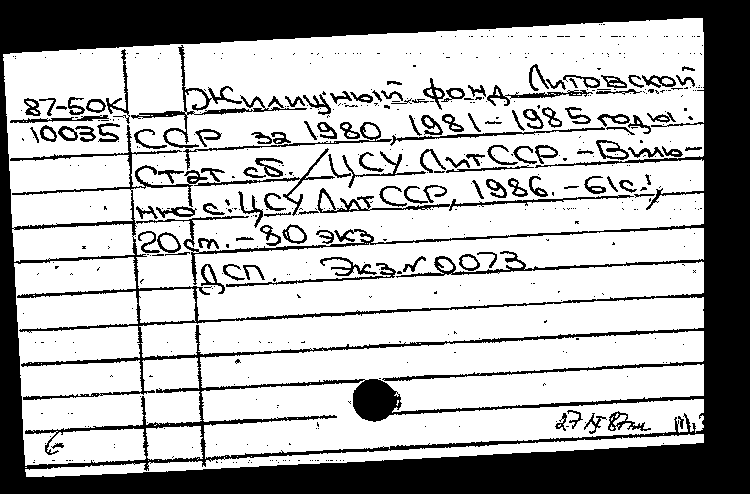 87-50К Жилищный фонд Литовской
10035 ССР за 1980, 1981-1985 годы:
Стат. сб. / ЦСУ ЛитССР. - Виль-
нюс: ЦСУ ЛитССР, 1986. - 61с.;
20 см. - 80 экз.
ДСП. Экз. N 0073
6